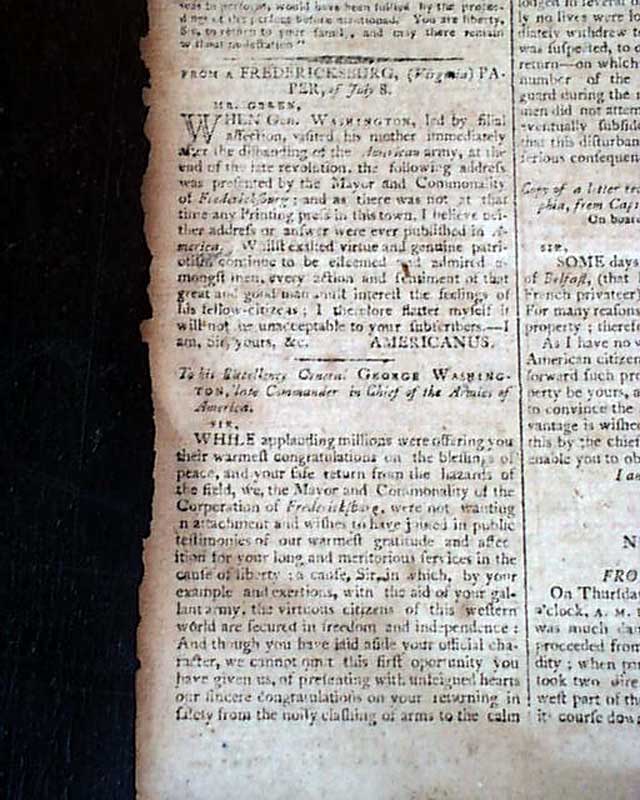 was to perform, would have been fulfilled by the
You are liberty,
Sir, to return to your family, and may there remain
without molestation"
FROM A FREDERICKSBURG, (Virginia) PA-
PER, of July 8.
MR. GREEN,
WHEN Gen. WASHINGTON, led by filial
affection, visited his mother immediately
after the disbanding of the American army, at the
end of the late revolution, the following address
was presented by the Mayor and Commonality
of Fredericksburg; and as there was not at that
time any Printing press in this town, I believe nei-
ther address or answer were ever published in A-
merica. Whilst exalted virtue and genuine patri-
otism continue to be esteemed and admired a-
mongst men, every action and sentiment of that
great and good man must interest the feelings of
his fellow-citizens; I therefore flatter myself it
will not be unacceptable to your subscribers.—I
am, Sir, yours, &c. AMERICANUS.
To his Excellency General GEORGE WASHING-
TON, late Commander in Chief of the Armies of
America.
SIR,
WHILE applauding millions were offering you
their warmest congratulations on the blessings of
peace, and your safe return from the hazards of
the field, we, the Mayor and Commonality of the
Corporation of Fredericksburg, were not wanting
n attachment and wishes to have joined in public
testimonies of our warmest gratitude and affec-
ition for your long and meritorious services in the
cause of liberty; a cause, Sir, in which, by your
example and exertions, with the aid of your gal-
lant army, the virtuous citizens of this western
world are secured in freedom and independence:
And though you have laid aside your official cha-
racter, we cannot omit this first oportunity you
have given us, of presenting with unfeigned hearts
our sincere congratulations on your returning in
safety from the noisy clashing of arms to the calm
lodged in several
ly no lives were lo
diately withdrew t
was suspected, to d
return—on which
number of the
guard during the n
men did not attem
eventually subsid
that this disturban
serious consequen
Copy of a letter fro
phia, from Capt
On boar
SIR,
SOME days
of Belfast, (that l
French privateer)
For many reasons
property; theref
As I have no v
American citizen
forward such pro
perty be yours, a
to convince the
vantage is wished
this by the chief
enable you to ob
I am
N
FRO
On Thursda
o'clock, A. M.
was much da
proceeded from
dity; when pa
took two dire
west part of th
it course dow